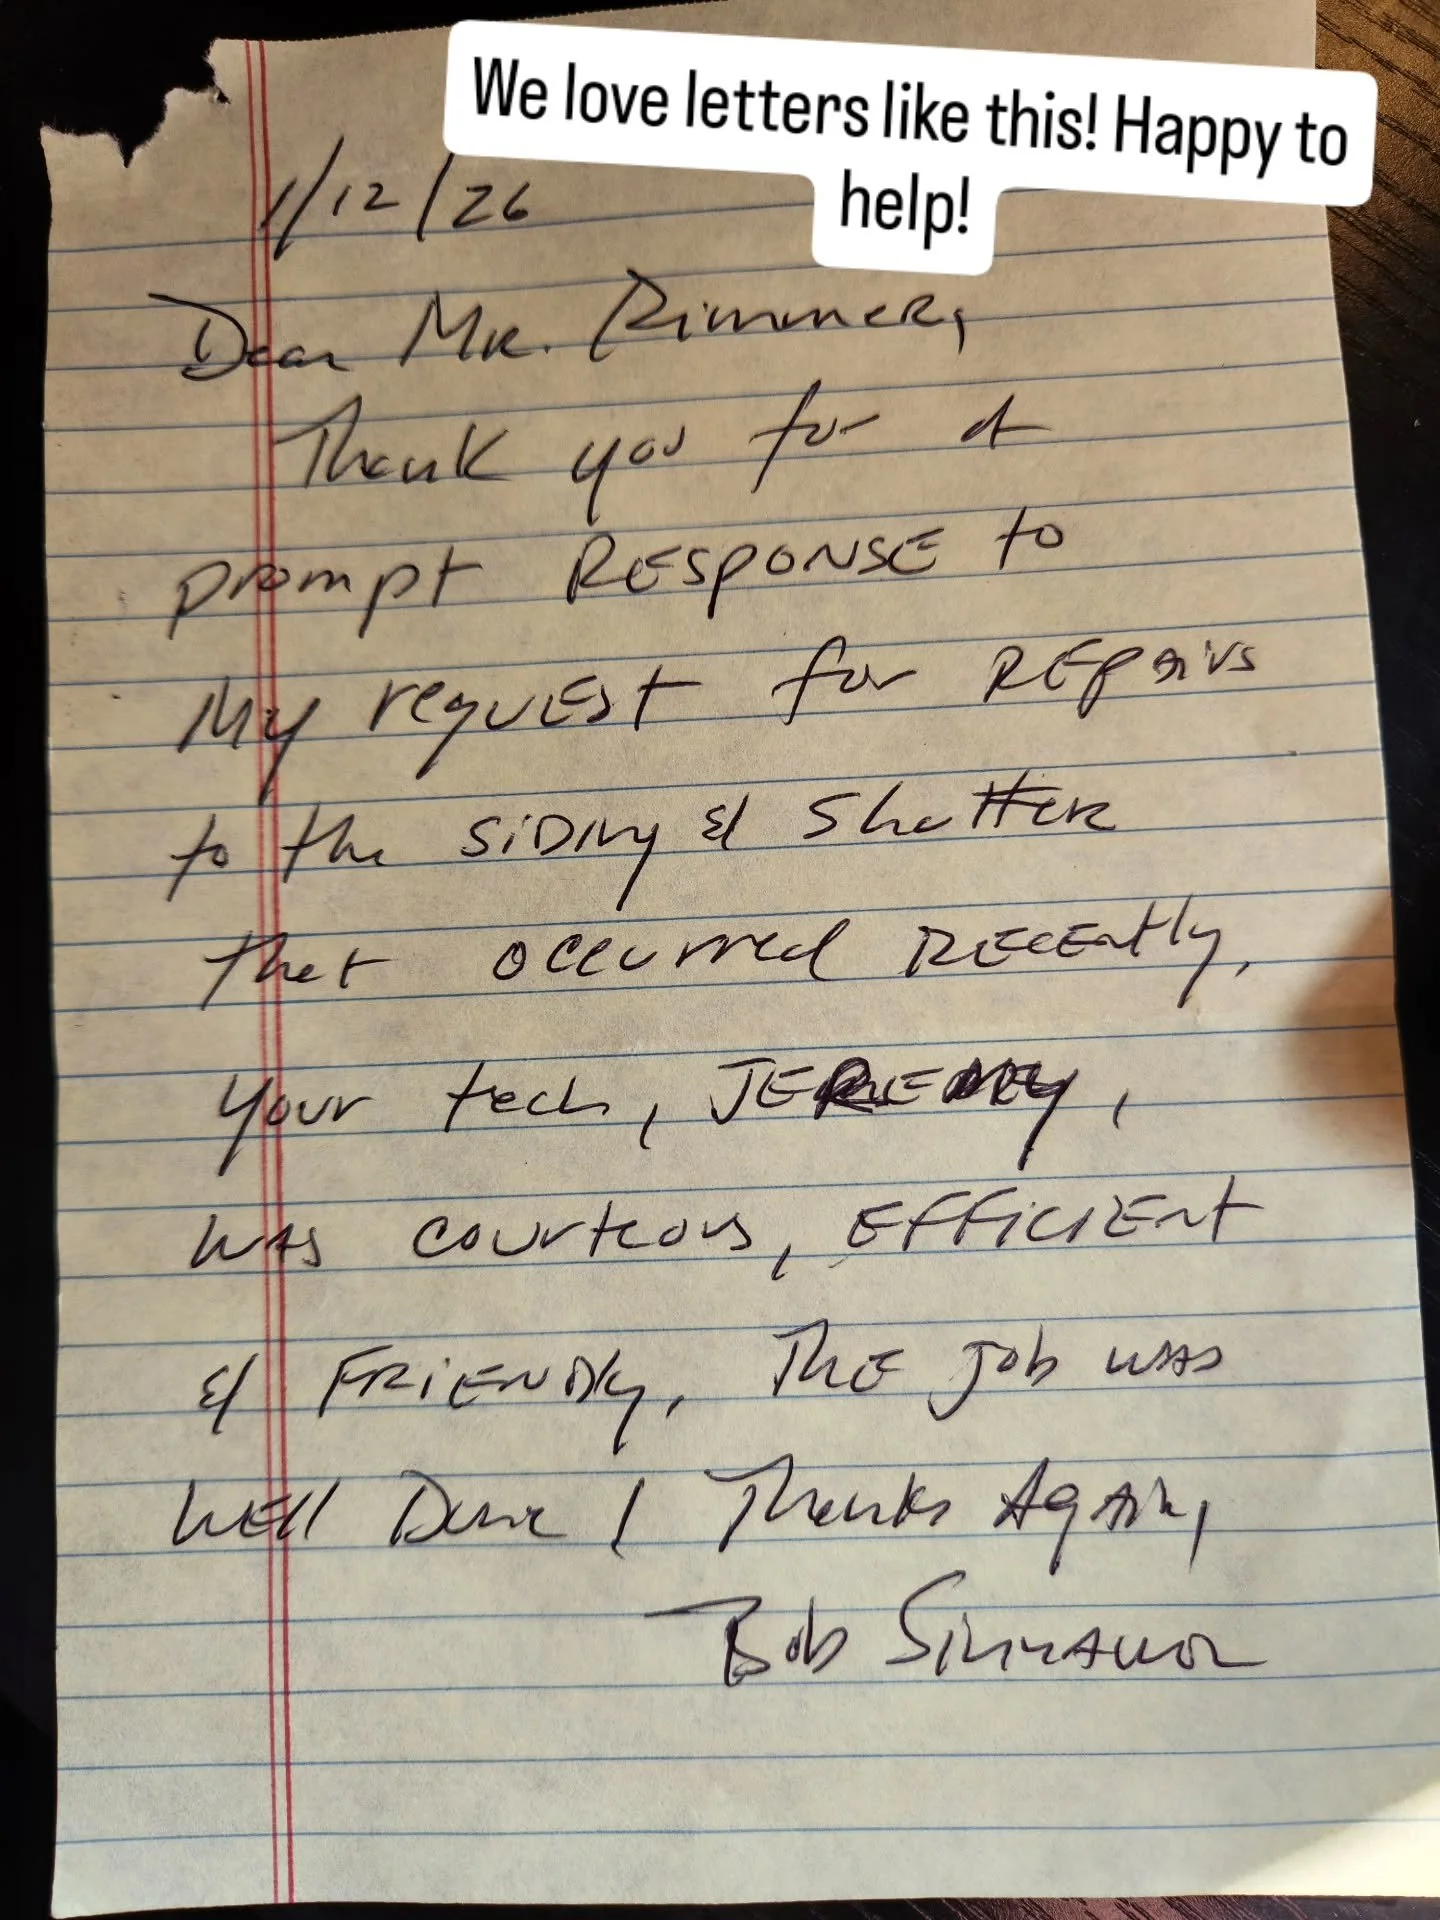 We love letters like this! Happy to
help!
1/12/26
Dear Mr. Rimmer,
Thank you for a
prompt RESPONSE to
My requEst for REpairs
to the siDing & ShuttER
that occurred RECEntly,
your tech, JEREMY,
was courteous, EFFiciEnt
& FRiENDly, ThE job was
WEll Done! Thanks Again,
Bob